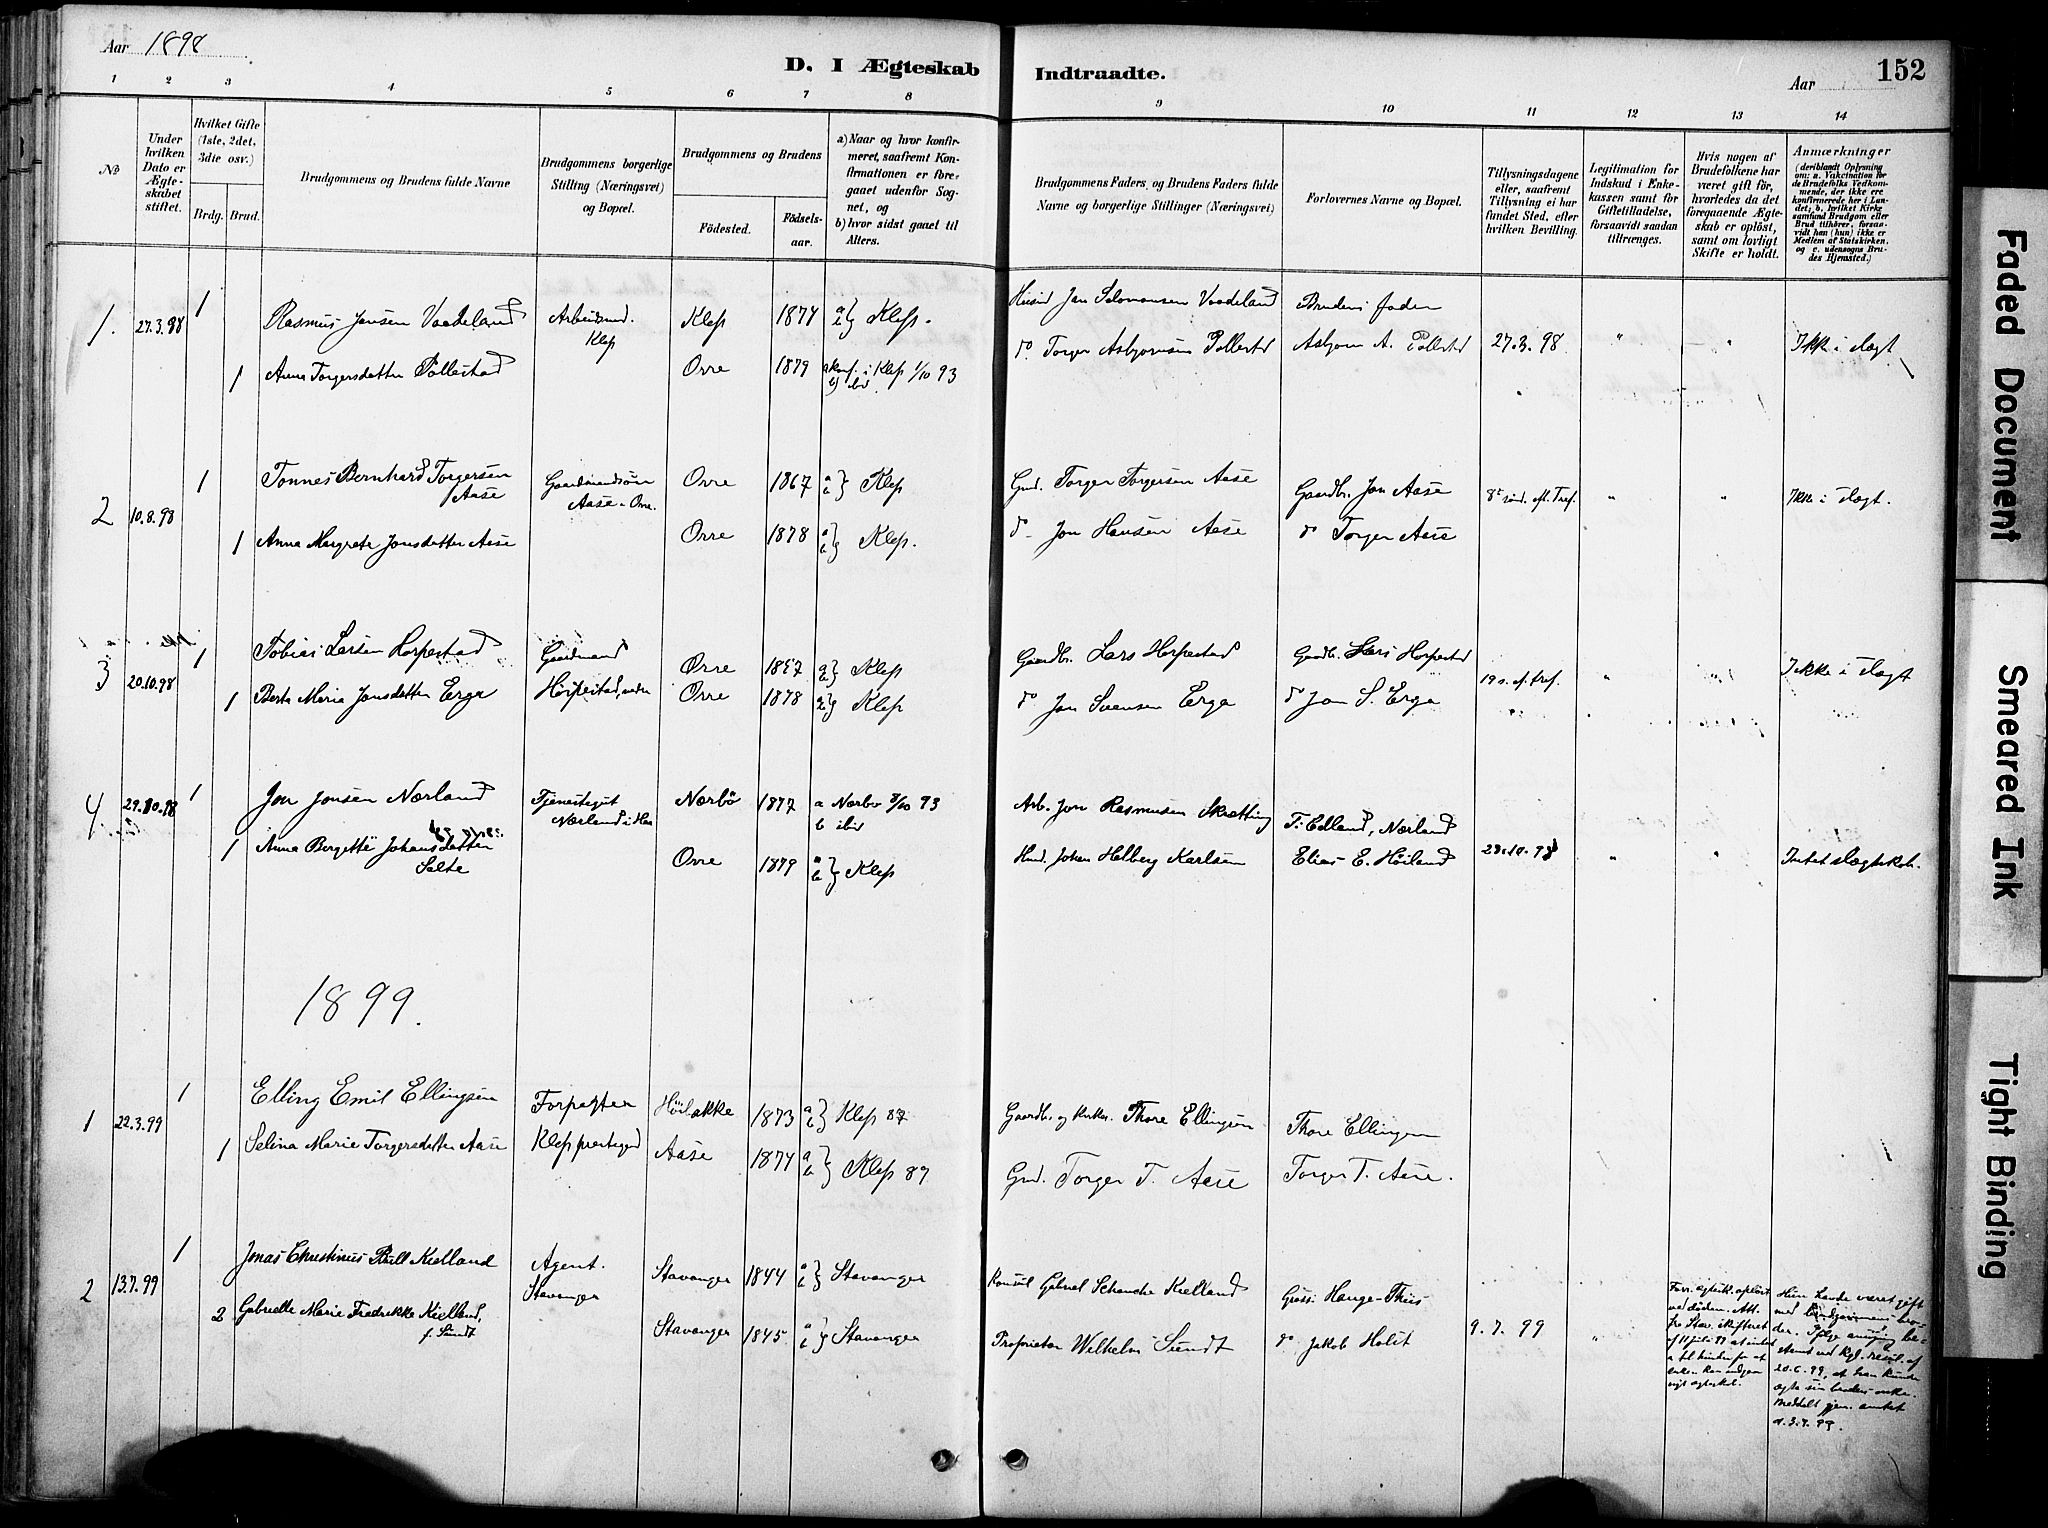 Aar 1898
D. I Ægteskab Indtraadte.
Aar
152
1 2 3 4 5 6 7 8 9 10 11 12 13 14
No
Under hvilken Dato er Ægteskabet stiftet.
Hvilket Gifte (1ste, 2det, 3die osv.)
Brdg. Brud.
Brudgommens og Brudens fulde Navne
Brudgommens borgerlige Stilling (Næringsvei) og Bopæl.
Brudgommens og Brudens
Fødested.
Fødselsaar.
a) Naar og hvor konfirmeret, saafremt Konfirmationen er foregaaet udenfor Sognet, og
b) hvor sidst gaaet til Alters.
Brudgommens Faders, og Brudens Faders fulde Navne og borgerlige Stillinger (Næringsvei)
Forlovernes Navne og Bopæl.
Tillysningsdagene eller, saafremt Tillysning ei har fundet Sted, efter hvilken Bevilling.
Legitimation for Indskud i Enkekassen samt for Giftetilladelse, forsaavidt saadan tiltrænges.
Hvis nogen af Brudefolkene har været gift før, hvorledes da det foregaaende Ægteskab er opløst, samt om lovligt Skifte er holdt.
Anmærkninger
(deriblandt Oplysning om: a. Vakcination for de Brudefolks Vedkommende, der ikke ere konfirmerede her i Landet; b. hvilket Kirkesamfund Brudgom eller Brud tilhører, forsaavidt han (hun) ikke er Medlem af Statskirken, og c. udensogns Brudes Hjemsted.)
1. 27.3.98 1 Rasmus Jonsen Vadeland Arbeidsmd. Klep Klep 1874 a b } Klep. Husmd Jon Salomonsen Vadeland Brudens fader
1 Anna Torgersdatter Pollestad Orre 1879 a konf. i Klep 1/10 93 b) ibid do Torger Asbjørnsen Pollestd Asbjørn A. Pollestd 27.3.98 " " Ikke i slægt
2 10.8.98 1 Tønnes Bernhard Torgersen Aase Gaardmandssøn Aase - Orre. Orre 1867 a b } Klep Gmd. Torger Torgersen Aase Gaardbr. Jon Aase 8de sønd. eft. Tref. " " Ikke i slægt.
1 Anna Margrete Jonsdatter Aase Orre 1878 a b } Klep. do Jon Hansen Aase do Torger Aase
3 20.10.98 1 Tobias Larsen Horpestad Gaardmand Orre 1857 a b } Klep Gaardbr. Lars Horpestad Gaardb. Lars Horpestad
1 Berte Maria Jonsdatter Erga Horpestad, nedre Orre 1878 a b } Klep do Jon Svensen Erga do Jon S. Erga 19 s. ef. tref. " " Ikke i slægt
4 29.10.98 1 Jon Jonsen Nærland Tjenestegut Nærland i Haa Nærbø 1877 a Nærbø 8/10 93 b ibid Arb. Jon Rasmussen Skretting T. Edland, Nærland
1 Anna Bergette Johansdatter Salte Orre 1879 a b } Klep Hmd. Johan Helberg Karlsen Elias E. Høiland 23.10.98 " " Intet slægtskab.
1899.
1 22.3.99 1 Elling Emil Ellingsen Forpagter Høilakke 1873 a b } Klep 87 Gaardbr. og kirkes. Thore Ellingsen Thore Ellingsen
1 Selina Marie Torgersdatter Aase Klep prestegrd Aase 1874 a b } Klep 89 Gmd. Torger T. Aase Torger T. Aase.
2 13.7.99 1 Jonas Christinus Bull Kielland Agent. Stavanger Stavanger 1844 a b } Stavanger Konsul Gabriel Schanche Kielland Gross. Hauge-Thiis
2 Gabrielle Marie Fredrikke Kielland, f. Sundt Stavanger 1845. a b } Stavanger Proprietær Wilhelm Sundt do Jakob Holst 9.7.99 " Forr. ægtesk. opløst ved døden. Att. fra Stav. skifteret af 11 juli 99 at intet er til hinder for at enken kan indgaa nyt ægteskab.
Hun havde været gift med brudgommens broder. Ifølge bestemt ved kgl. resol. af 20.6.99, at han kunde ægte sin broders enke. Meddelt gjen. amtet d. 3.7.99.
Faded Document
Smeared Ink
Tight Binding